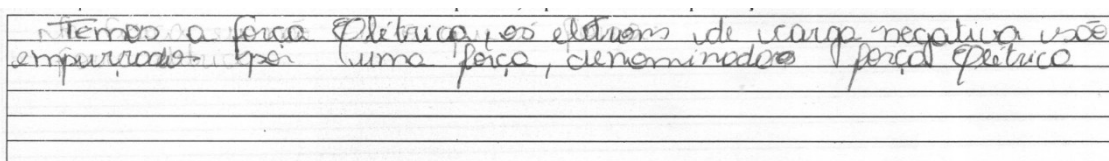 Temos a força Elétrica, os elétrons de carga negativa são
empurrado por uma força, denominadas força Elétrica